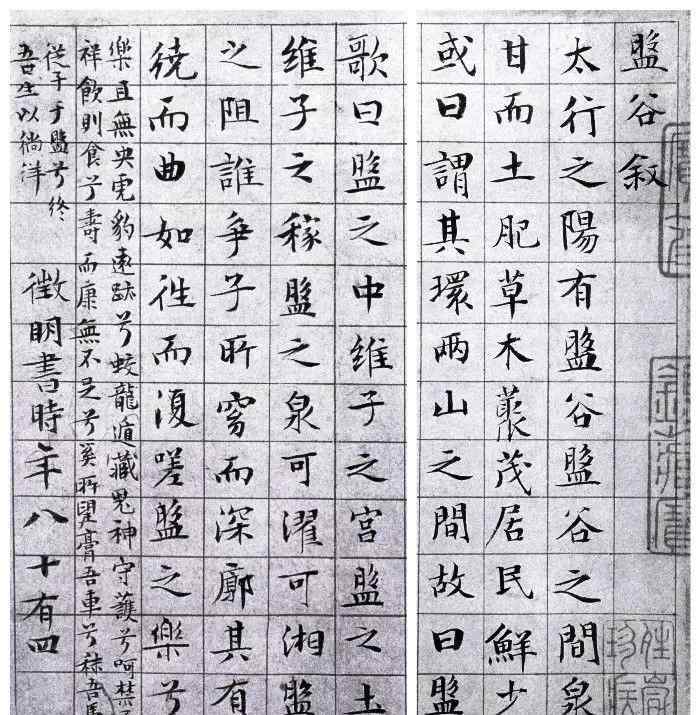 盤谷叙
太行之陽有盤谷盤谷之間泉
甘而土肥草木藂茂居民鮮少
或曰謂其環兩山之間故曰盤
歌曰盤之中維子之宮盤之土
維子之稼盤之泉可濯可湘盤
之阻誰爭子所窈而深廓其有
繞而曲如往而復嗟盤之樂兮
樂且無央虎豹遠跡兮蛟龍遁藏鬼神守護兮呵禁
祥飲則食兮壽而康無不足兮奚所望膏吾車兮秣吾馬
從子于盤兮終
吾生以徜徉
徵明書時年八十有四